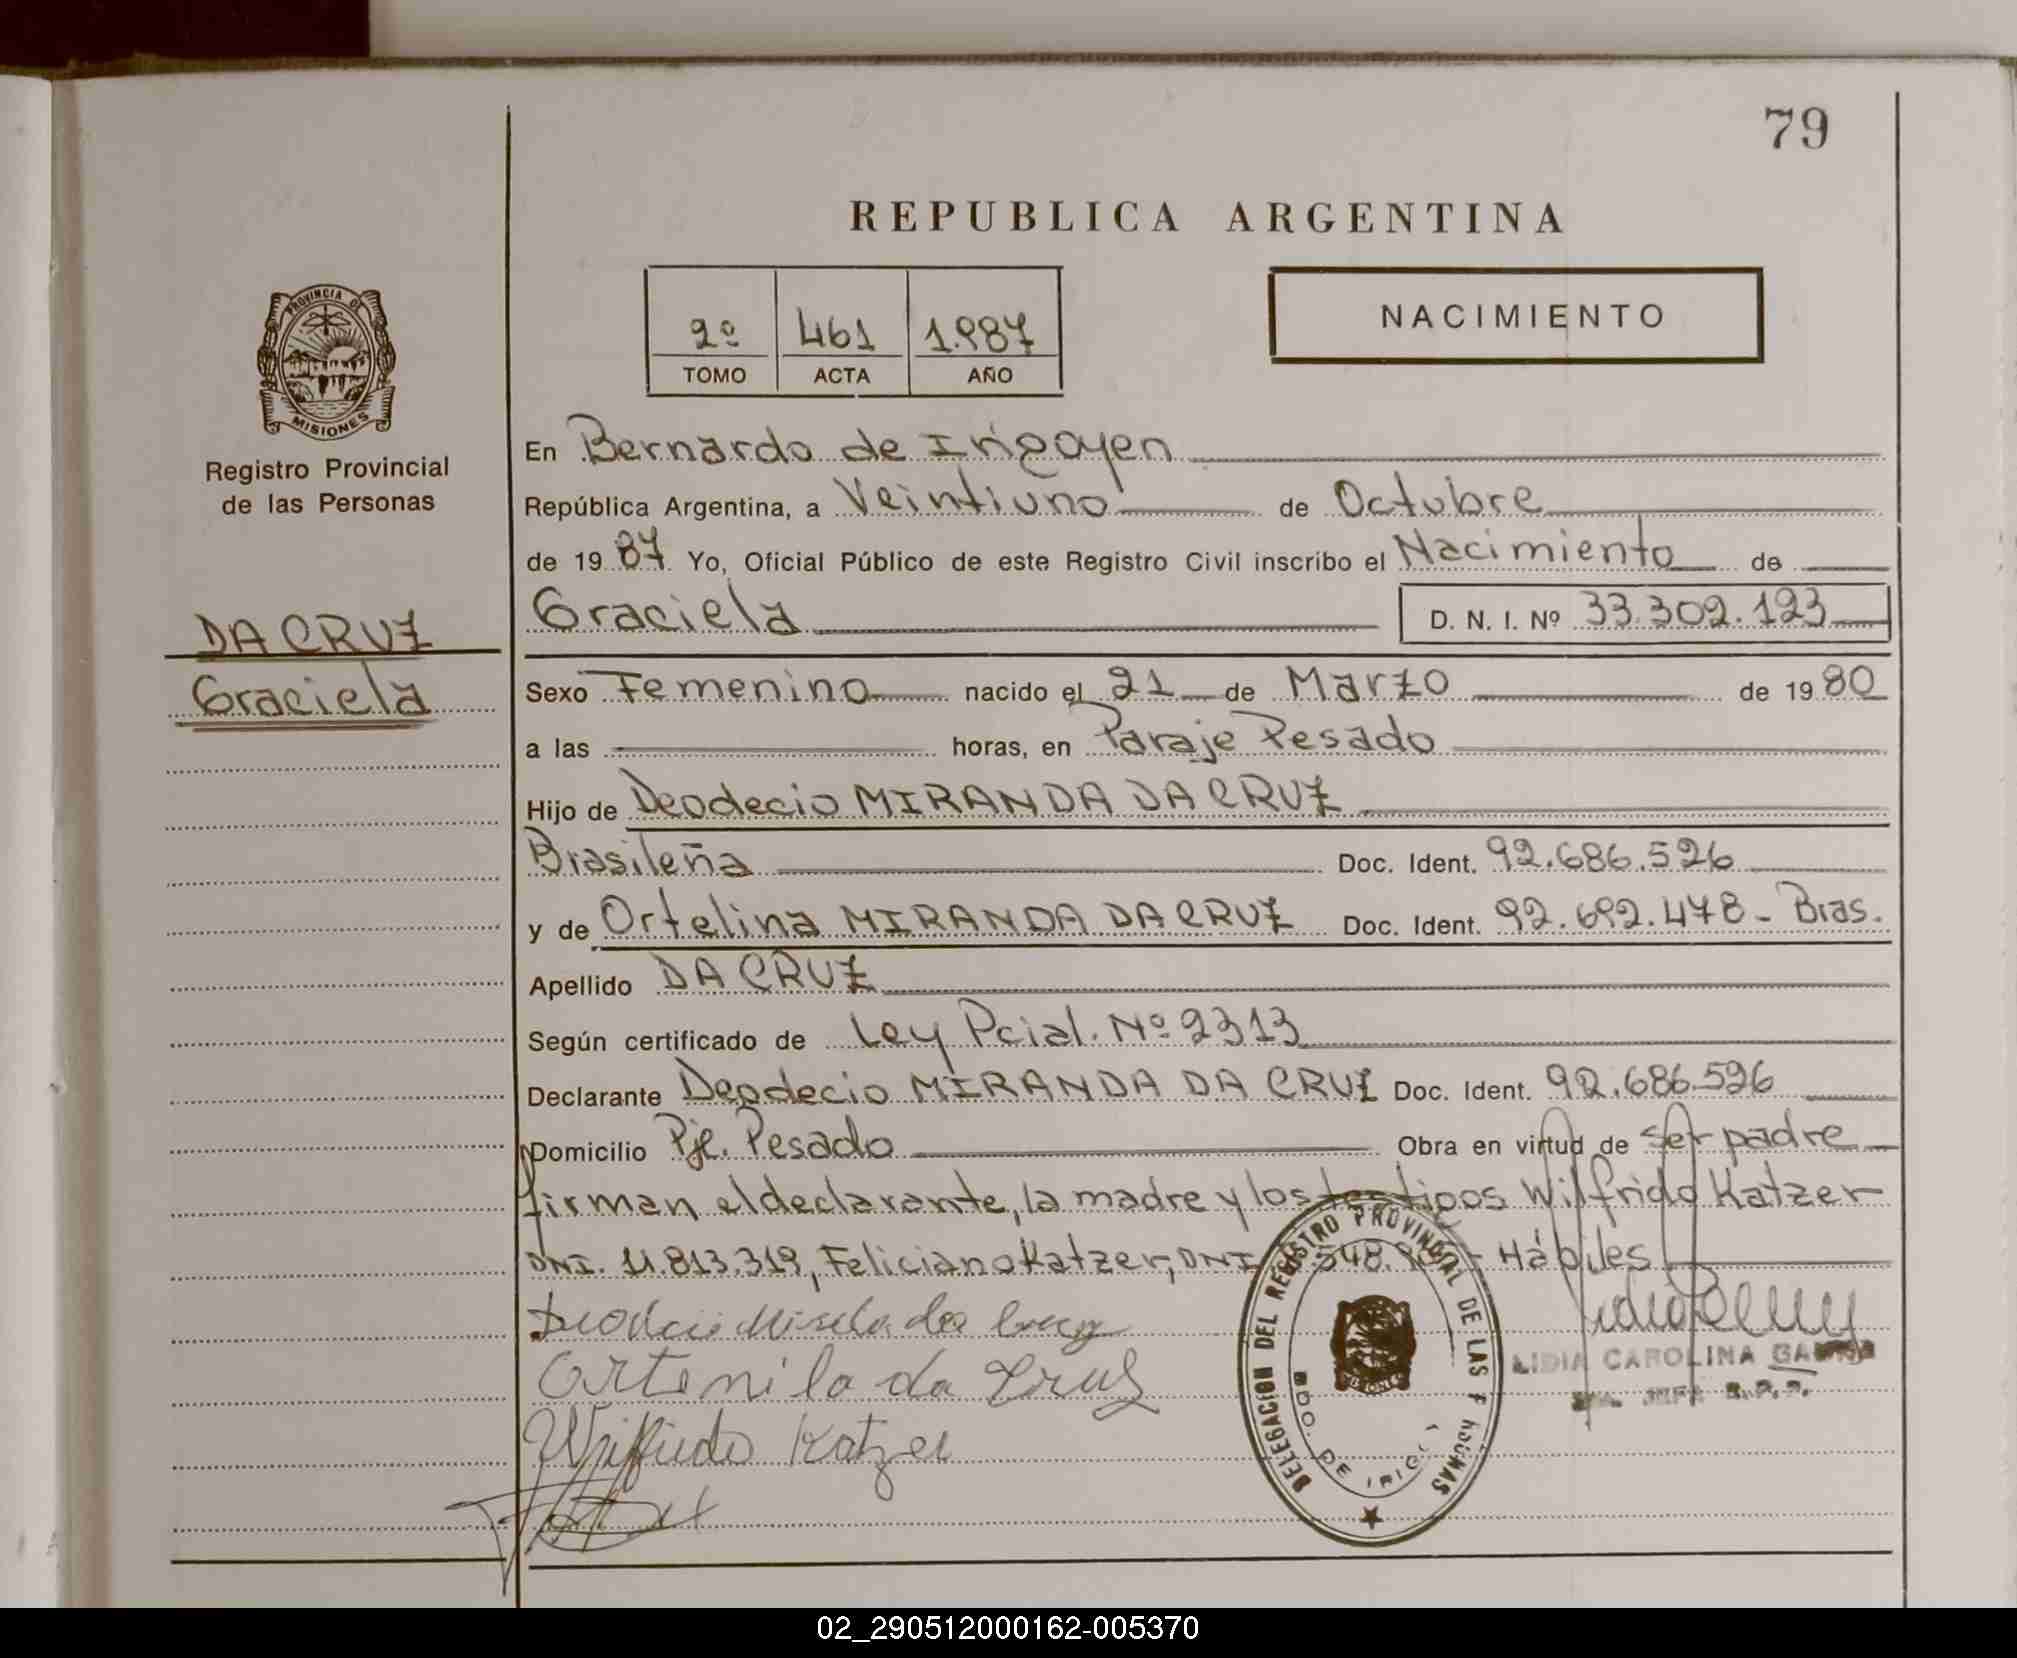 79
REPUBLICA ARGENTINA
2º 461 1.987
TOMO ACTA AÑO
NACIMIENTO
PROVINCIA DE
MISIONES
Registro Provincial
de las Personas
DA CRUZ
Graciela
En Bernardo de Irigoyen
República Argentina, a Veintiuno de Octubre
de 19 87 Yo, Oficial Público de este Registro Civil inscribo el Nacimiento de
Graciela D. N. I. Nº 33.302.123
Sexo Femenino nacido el 21 de Marzo de 19 80
a las horas, en Paraje Pesado
Hijo de Deodecio MIRANDA DA CRUZ
Brasileña Doc. Ident. 92.686.526
y de Ortelina MIRANDA DA CRUZ Doc. Ident. 92.692.478 - Bras.
Apellido DA CRUZ
Según certificado de Ley Pcial. Nº 2313
Declarante Deodecio MIRANDA DA CRUZ Doc. Ident. 92.686.526
Domicilio Pje. Pesado Obra en virtud de ser padre
firman el declarante, la madre y los testigos Wilfrido Katzer
DNI. 11.813.319, Feliciano Katzer, DNI Hábiles
da Cruz
Ortenila da Cruz
Wilfrido Katzer
DELEGACION DEL REGISTRO PROVINCIAL DE LAS
BDO. DE
MISIONES
LIDIA CAROLINA
JEFA R.P.P.
02_290512000162-005370